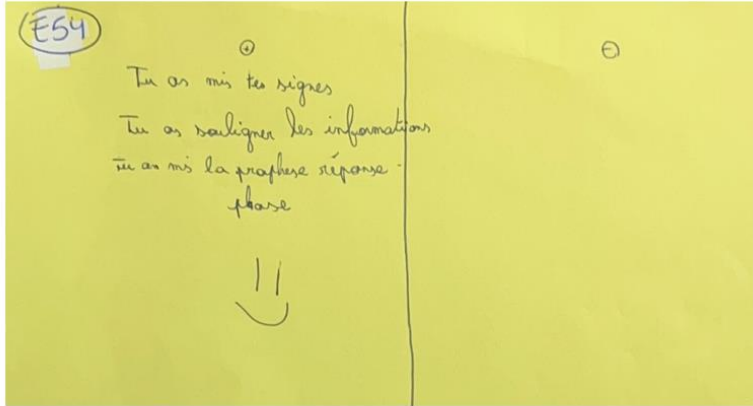 E54
⊕
⊖
Tu as mis tes signes
Tu as souligner les informations
Tu as mis la praphese réponse.
phase